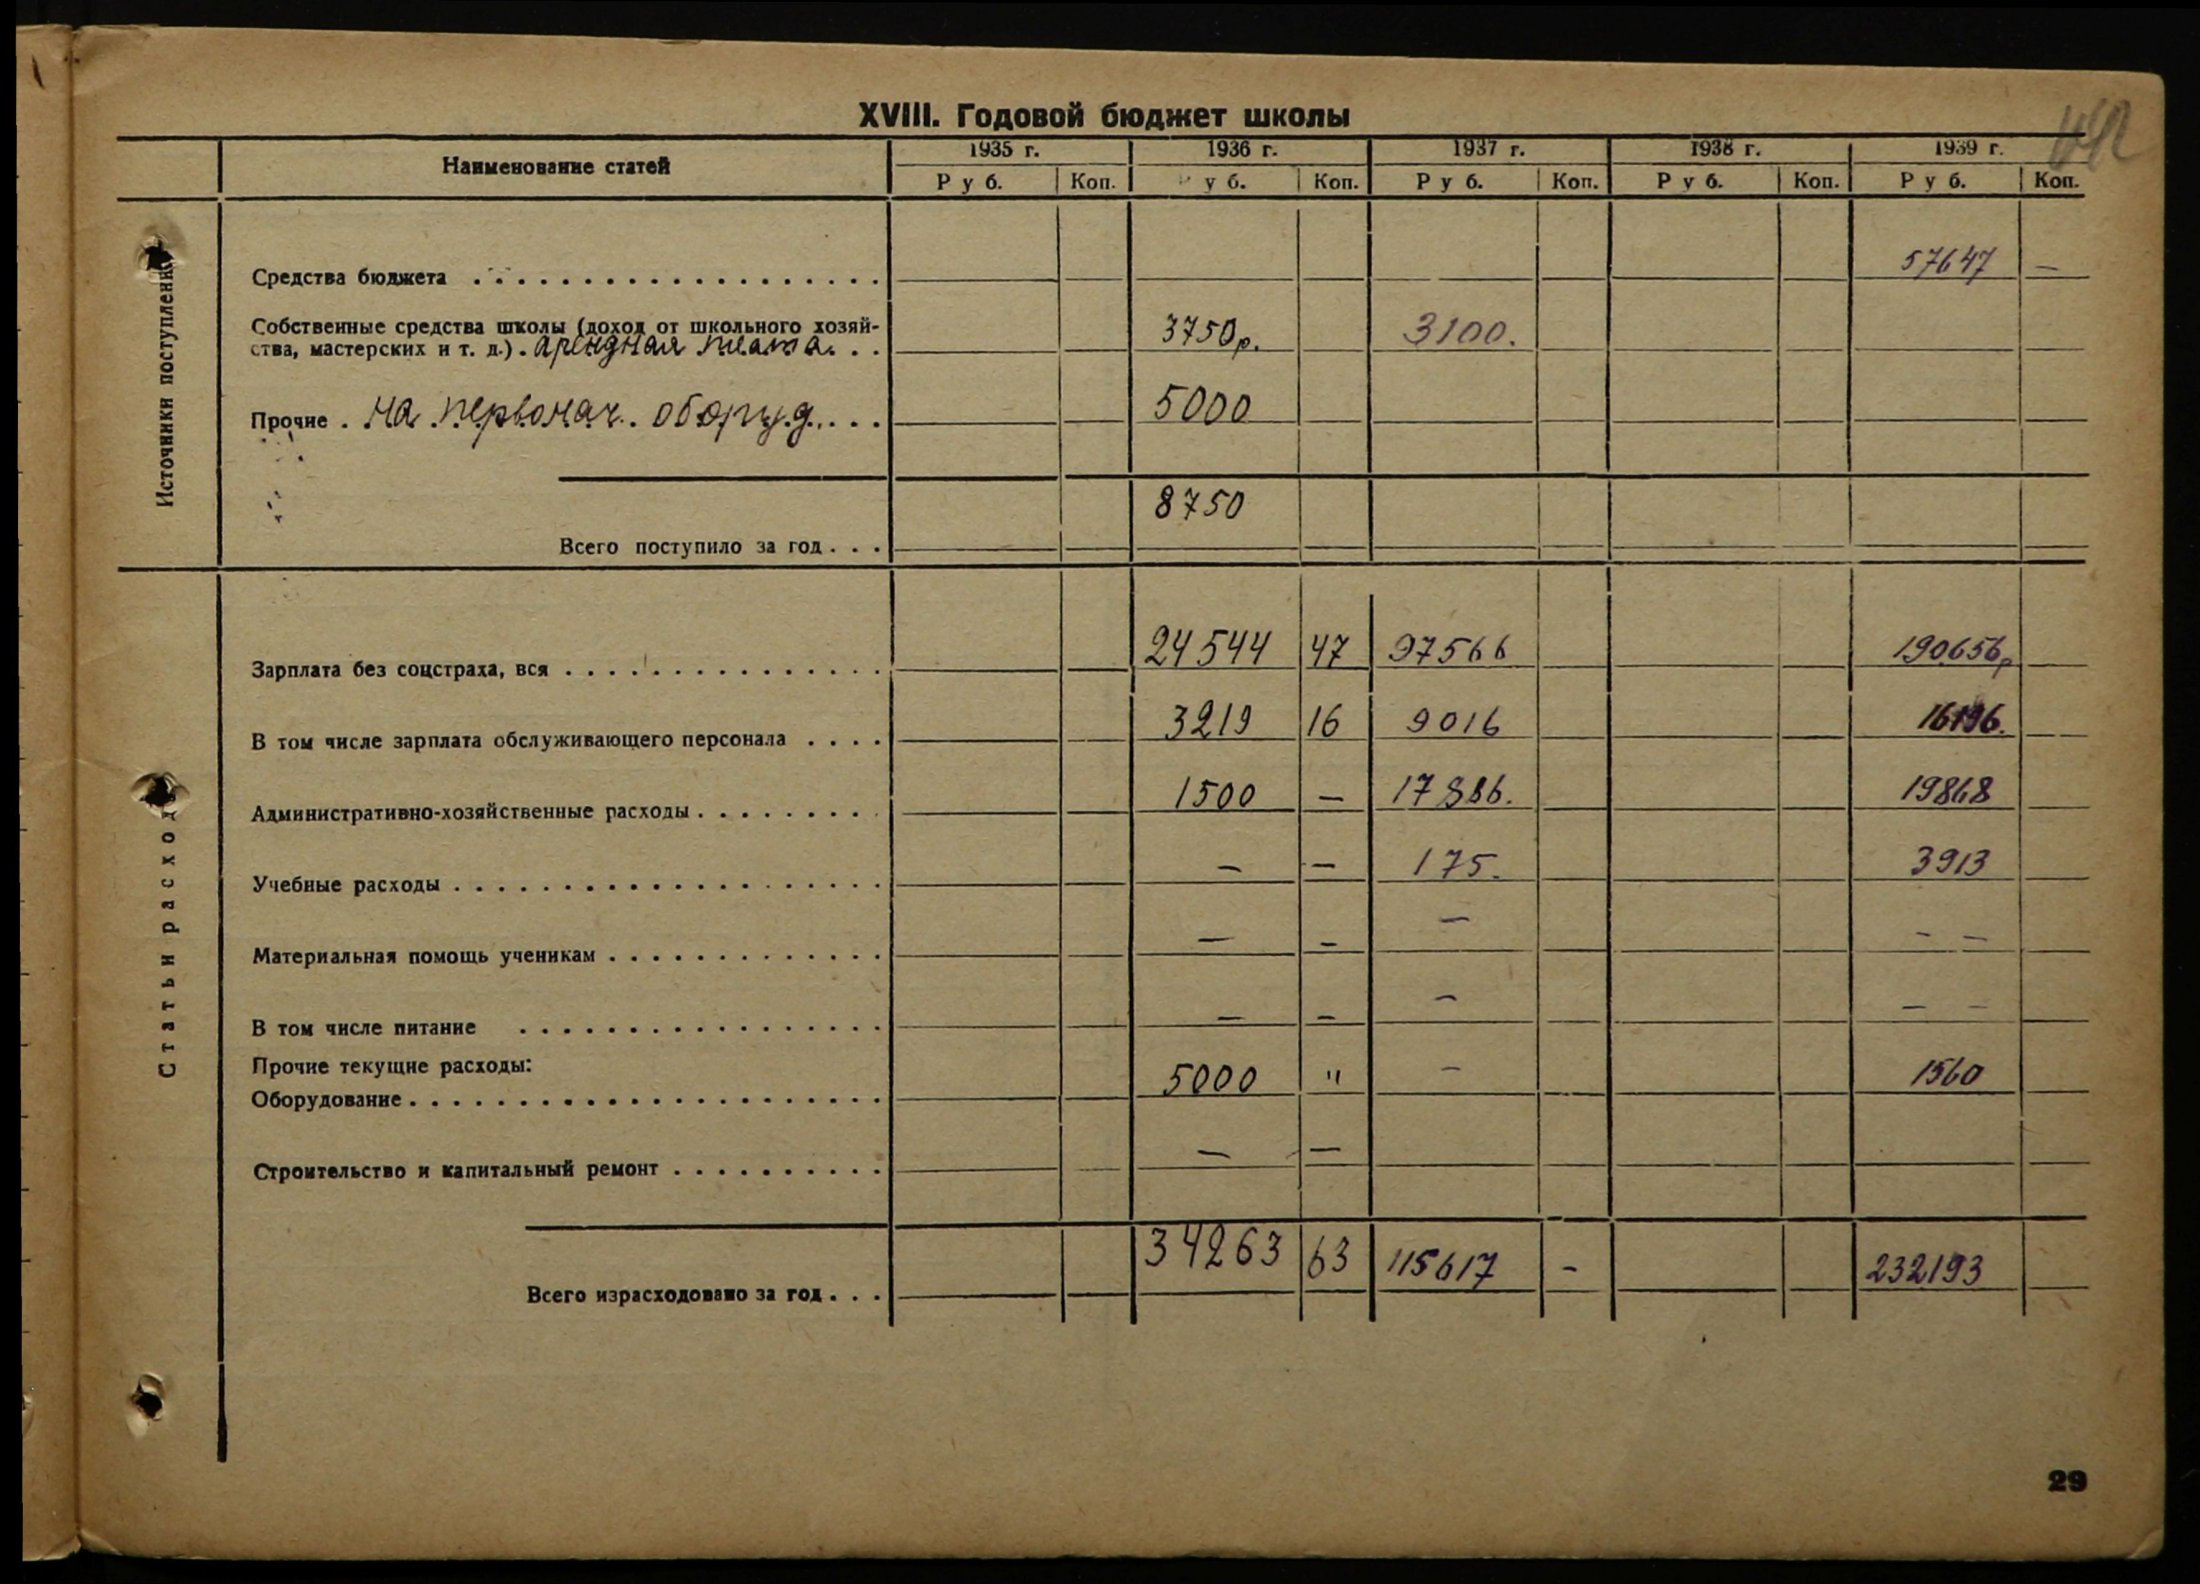 XVIII. Годовой бюджет школы
Наименование статей 1935 г. 1936 г. 1937 г. 1938 г. 1939 г.
Руб. Коп. уб. Коп. Руб. Коп. Руб. Коп. Руб. Коп.
Источники поступлений
Средства бюджета 57647 —
Собственные средства школы (доход от школьного хозяй-
ства, мастерских и т. д.) арендная плата 3750р. 3100.
Прочие на первонач. оборуд. 5000
Всего поступило за год 8750
Статьи расход
Зарплата без соцстраха, вся 24544 47 97566 190656р
В том числе зарплата обслуживающего персонала 3219 16 9016 16196.
Административно-хозяйственные расходы 1500 — 17886. 19868
Учебные расходы — — 175. 3913
Материальная помощь ученикам — — — — —
В том числе питание — — — — —
Прочие текущие расходы:
Оборудование 5000 " — 1560
Строительство и капитальный ремонт — —
Всего израсходовано за год 34263 63 115617 — 232193
29